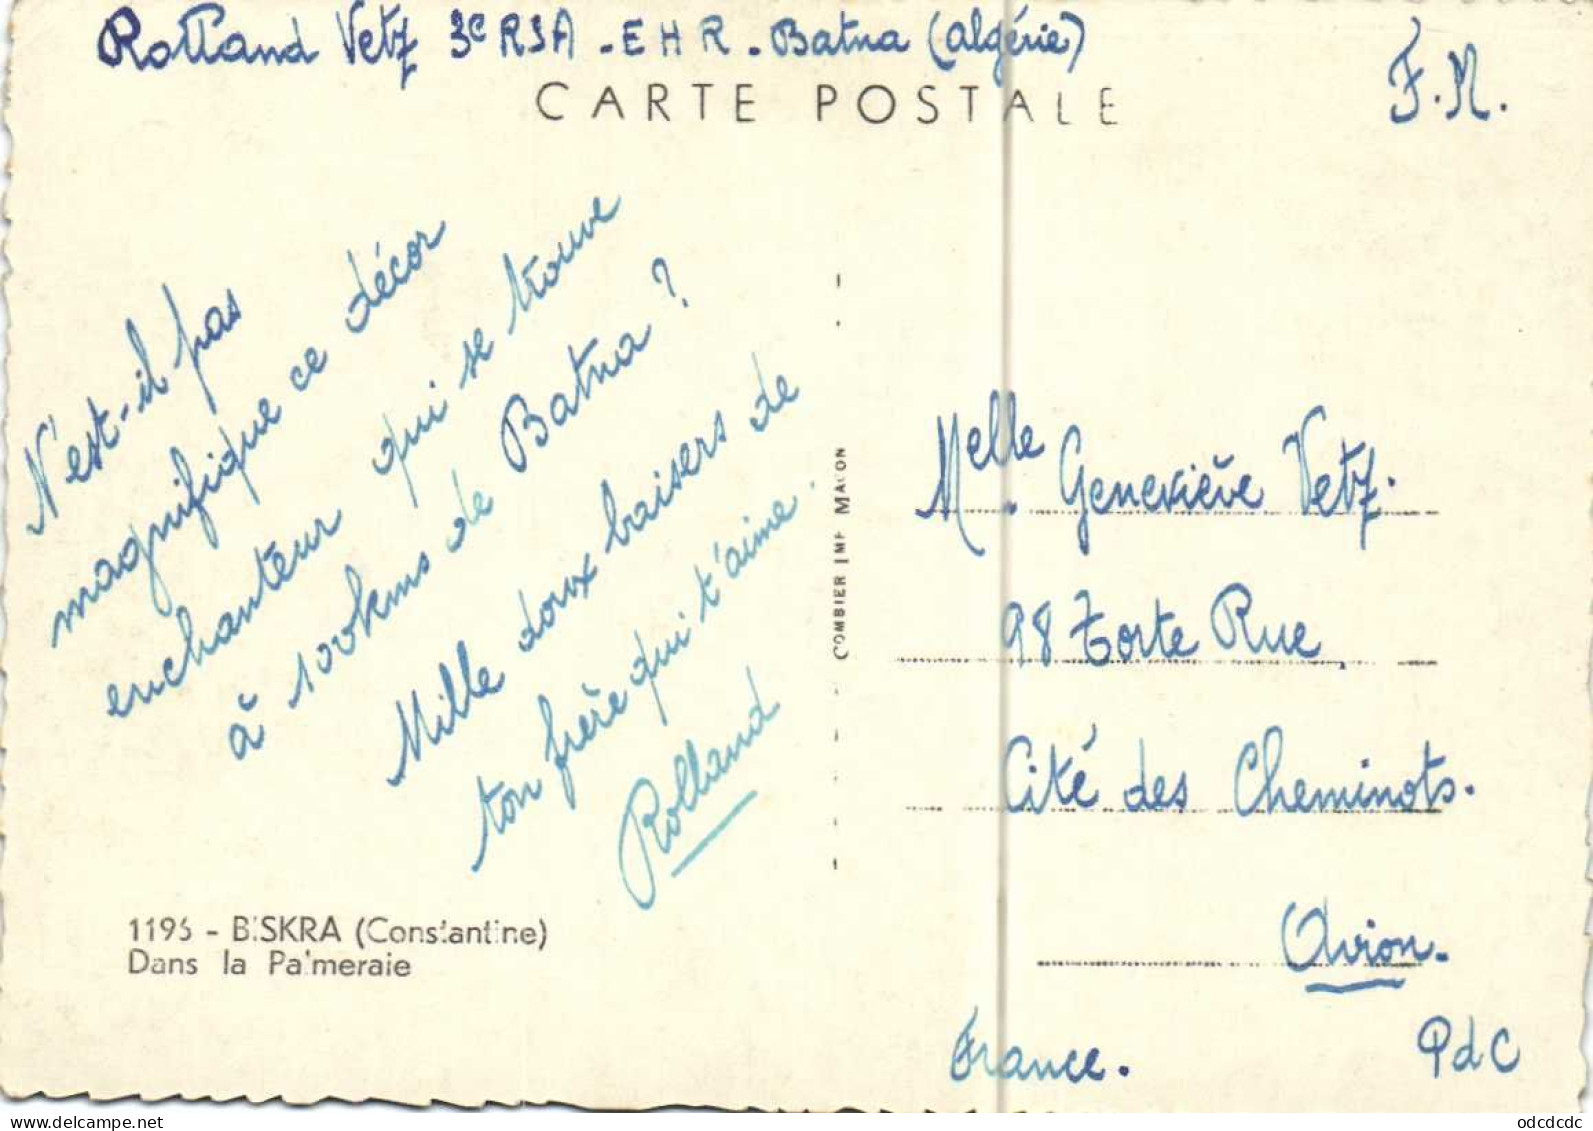 Rolland Vetz 3e RSA - EHR - Batna (Algérie)
CARTE POSTALE
F.M.
N'est-il pas
magnifique ce décor
enchanteur qui se trouve
à 100kms de Batna ?
Mille doux baisers de
ton frère qui t'aime.
Rolland
1196 - BISKRA (Constantine)
Dans la Palmeraie
COMBIER IMP MACON
Melle Geneviève Vetz.
98 Torte Rue
Cité des Cheminots.
Avion.
France.
PdC
odcdcdc